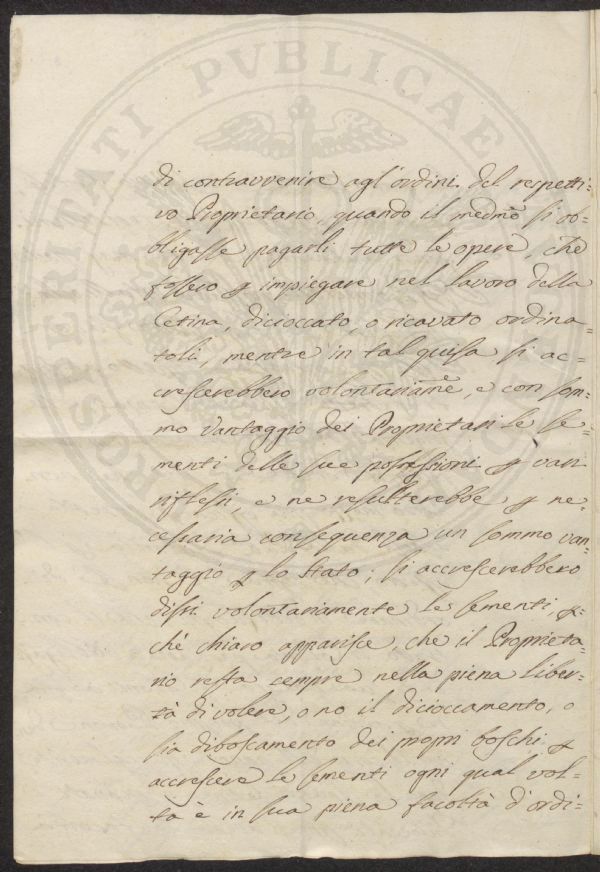 PROSPERITATI PVBLICAE
di contravvenire agl'ordini del respetti=
vo Proprietario, quando il medmo si ob=
bligasse pagarli tutte le opere, che
fossero p impiegare nel lavoro della
Cetina, dicioccato, o ricavato ordina=
toli, mentre in tal guisa si ac=
crescerebbero volontariamte, e con som=
mo vantaggio dei Proprietari le se=
menti delle sue possessioni p vari
riflessi, e ne resulterebbe p ne=
cessaria conseguenza un sommo van=
taggio p lo Stato; si accrescerebbero
dissi volontariamente le sementi, p=
chè chiaro apparisce, che il Proprieta=
rio resta sempre nella piena liber=
tà di volere, o no il dicioccamento, o
sia diboscamento dei propri boschi p
accrescere le sementi ogni qual vol=
ta è in sua piena facoltà d'ordi=